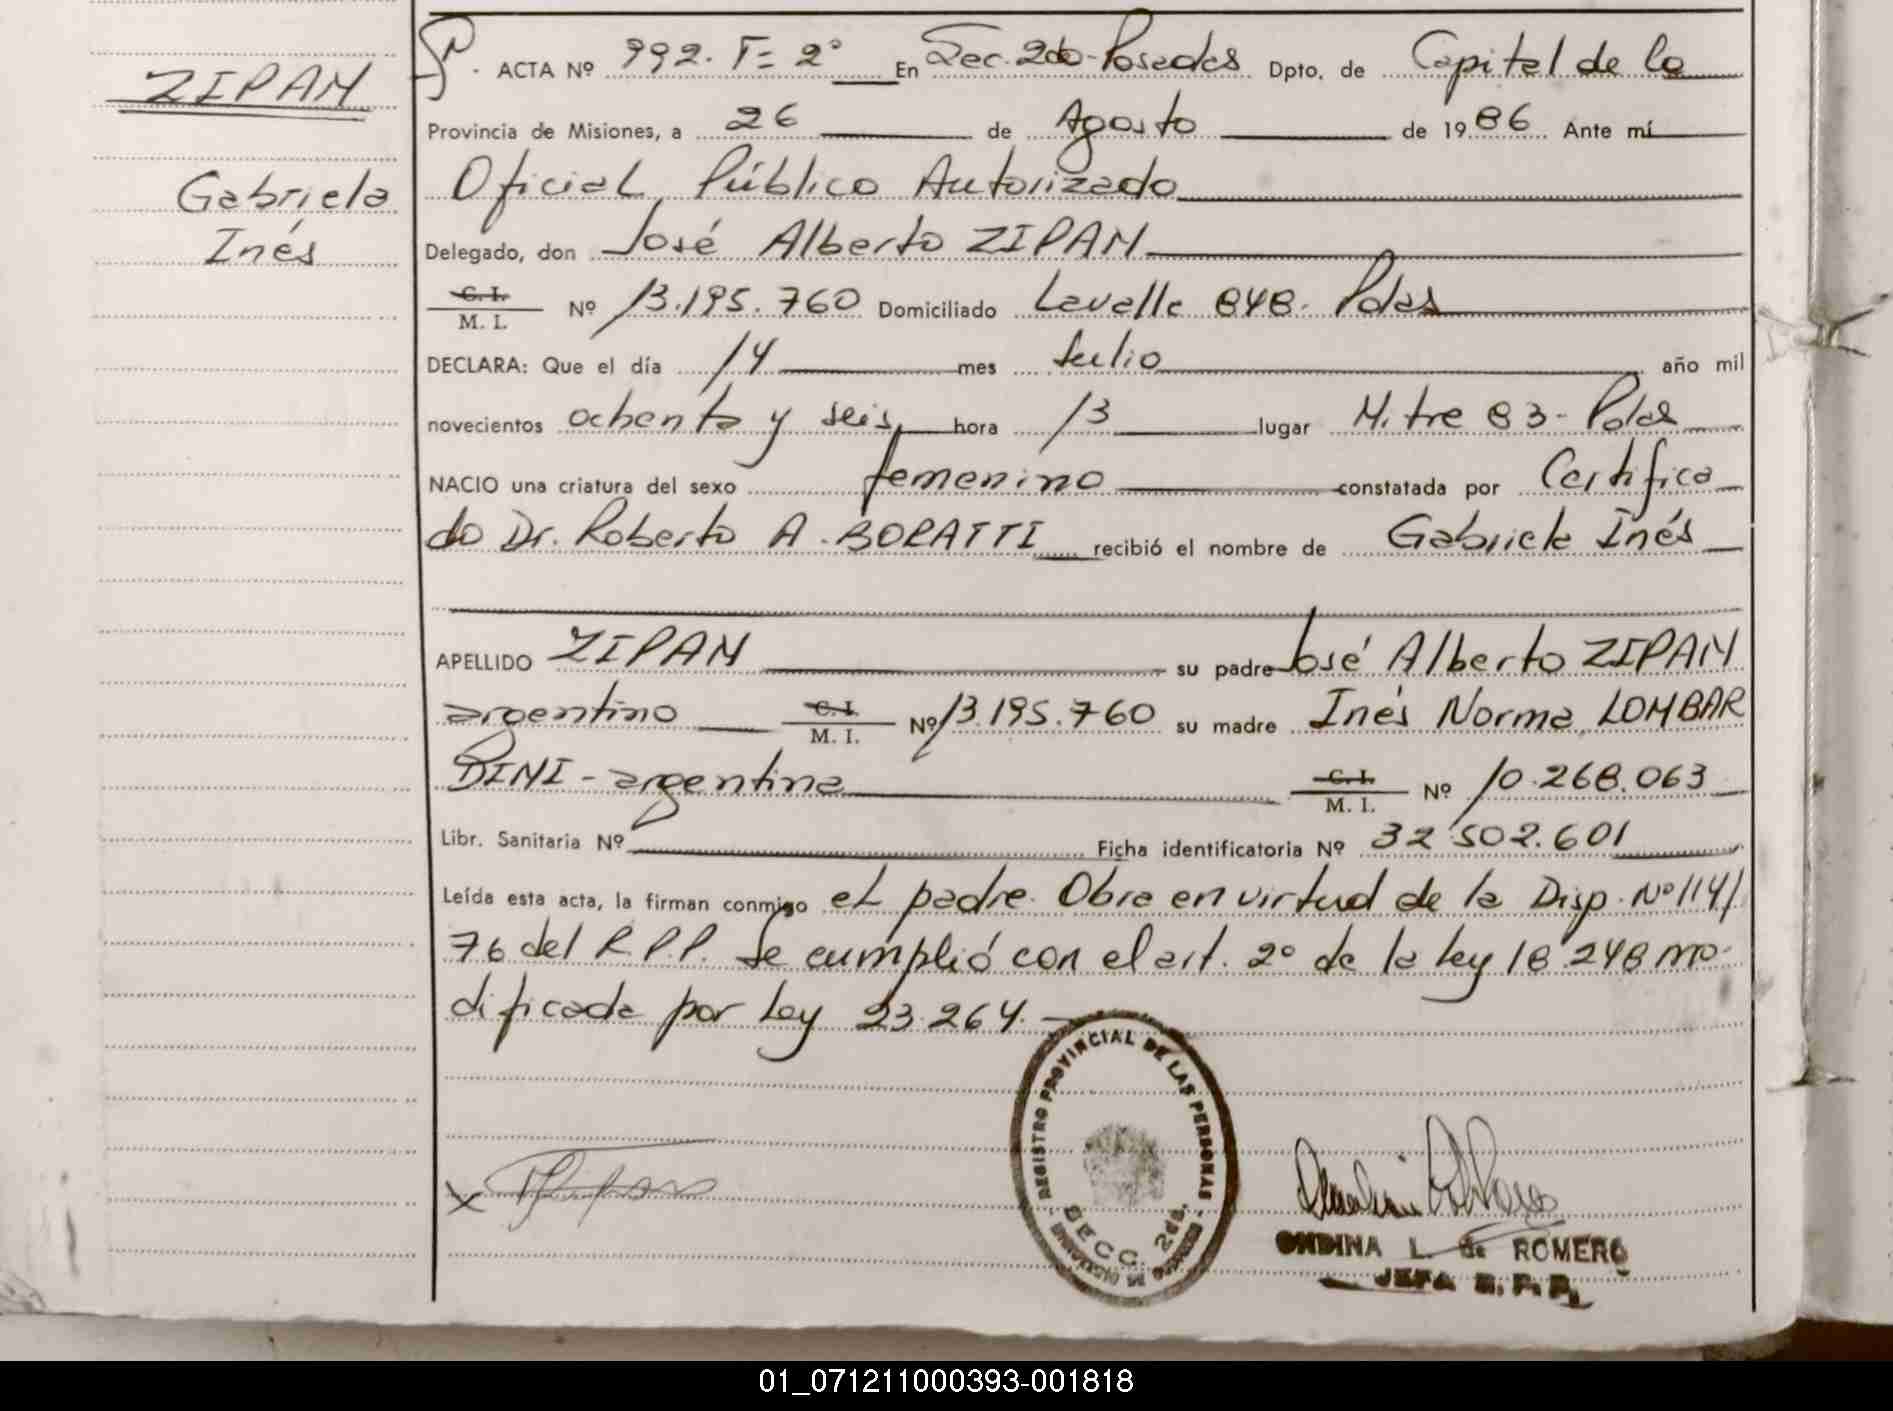 ZIPAN
Gabriela
Inés
ACTA Nº 992. Tº 2º En Sec. 2do-Posadas Dpto. de Capital de la
Provincia de Misiones, a 26 de Agosto de 1986 Ante mí
Oficial Público Autorizado
Delegado, don José Alberto ZIPAN
C. I. M. I. Nº 13.195.760 Domiciliado Lavalle 848- Pdas
DECLARA: Que el día 14 mes Julio año mil
novecientos ochenta y seis, hora 13 lugar Mitre 83- Pdas
NACIO una criatura del sexo femenino constatada por Certifica
do Dr. Roberto A. BORATTI recibió el nombre de Gabriela Inés
APELLIDO ZIPAN su padre José Alberto ZIPAN
argentino C. I. M. I. Nº 13.195.760 su madre Inés Norma LOMBAR
DINI - argentina C. I. M. I. Nº 10.268.063
Libr. Sanitaria Nº Ficha identificatoria Nº 32.502.601
Leída esta acta, la firman conmigo el padre. Obra en virtud de la Disp. Nº 114/
76 del R.P.P. Se cumplió con el art. 2º de la Ley 18.248 mo-
dificada por Ley 23.264.-
REGISTRO PROVINCIAL DE LAS PERSONAS
SECC. 2da.
ONDINA L. de ROMERO
JEFA R. P. P.
01_071211000393-001818